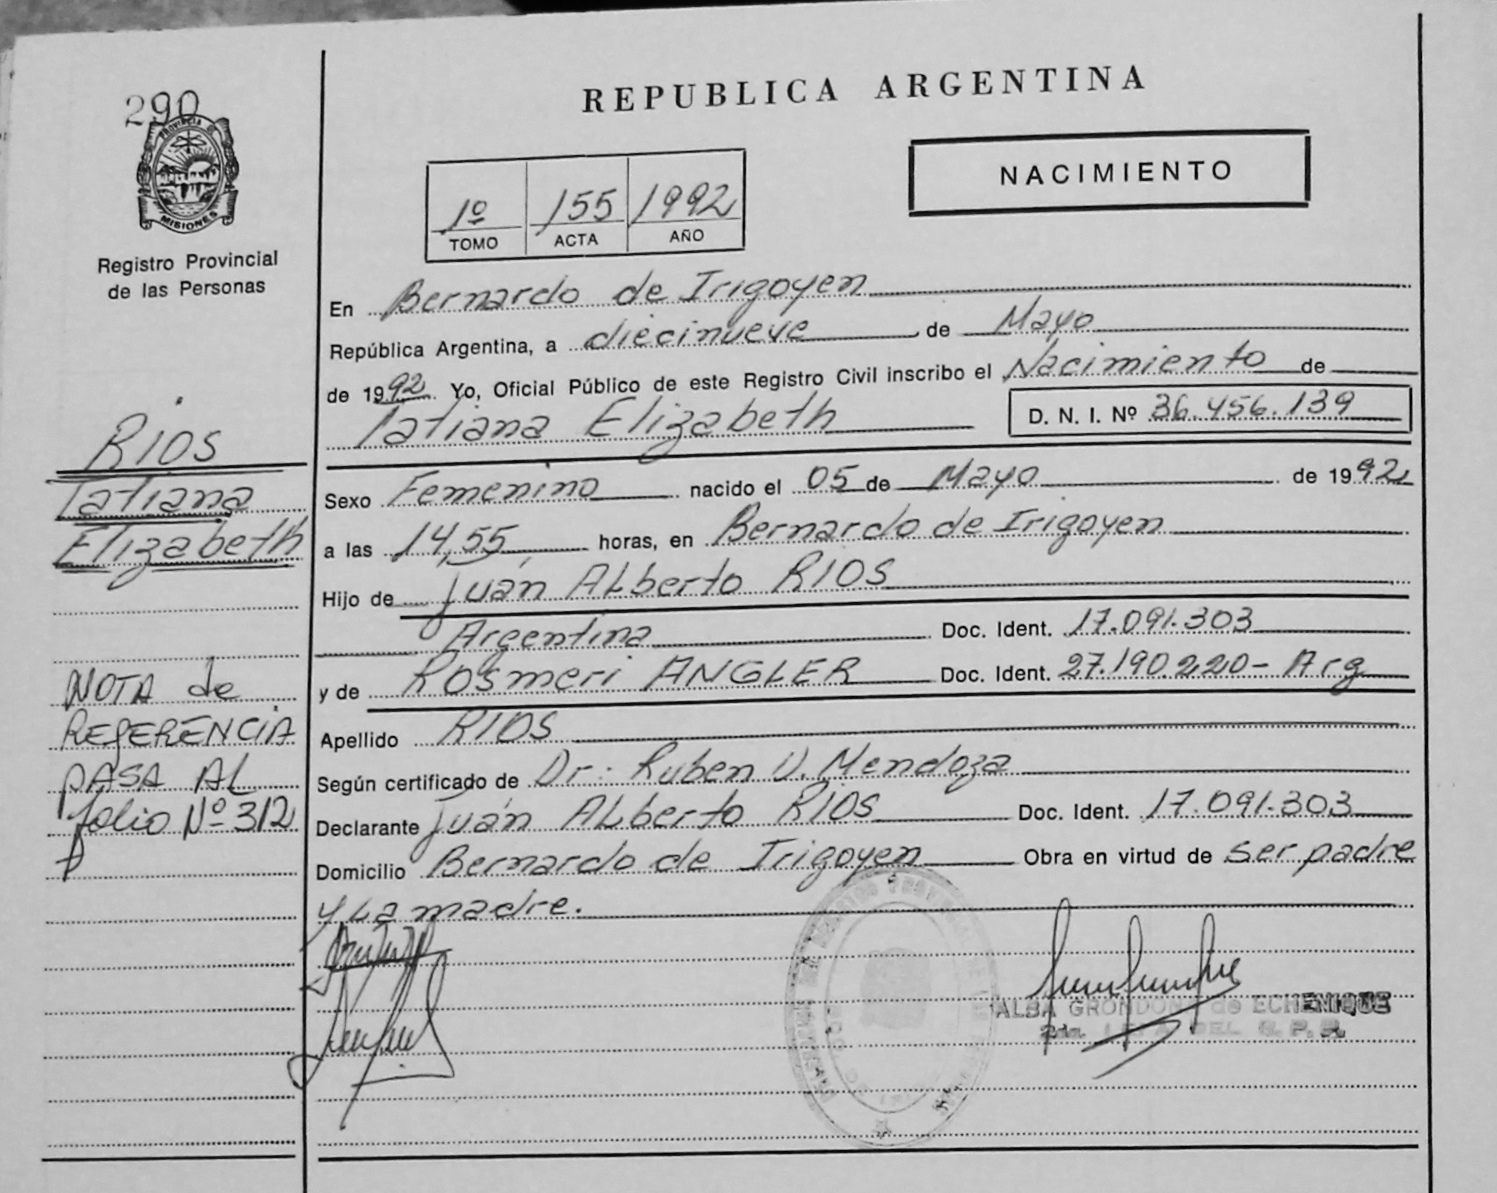 290
PROVINCIA DE
MISIONES
Registro Provincial
de las Personas
REPUBLICA ARGENTINA
NACIMIENTO
1º 155 1992
TOMO ACTA AÑO
En Bernardo de Irigoyen
República Argentina, a diecinueve de Mayo
de 1992. Yo, Oficial Público de este Registro Civil inscribo el Nacimiento de
Tatiana Elizabeth D. N. I. Nº 36.456.139
RIOS
Tatiana
Elizabeth
Sexo Femenino nacido el 05 de Mayo de 1992
a las 14,55 horas, en Bernardo de Irigoyen
Hijo de Juan ALberto RIOS
Argentina Doc. Ident. 17.091.303
y de Rosmeri ANGLER Doc. Ident. 27.190.220- Arg
NOTA de
REFERENCIA
PASA AL
folio Nº 312
Apellido RIOS
Según certificado de Dr. Ruben D. Mendoza
Declarante Juan ALberto RIOS Doc. Ident. 17.091.303
Domicilio Bernardo de Irigoyen Obra en virtud de ser padre
y La madre.
ALBA GRONDONA de ECHENIQUE
DEL R. P. P.